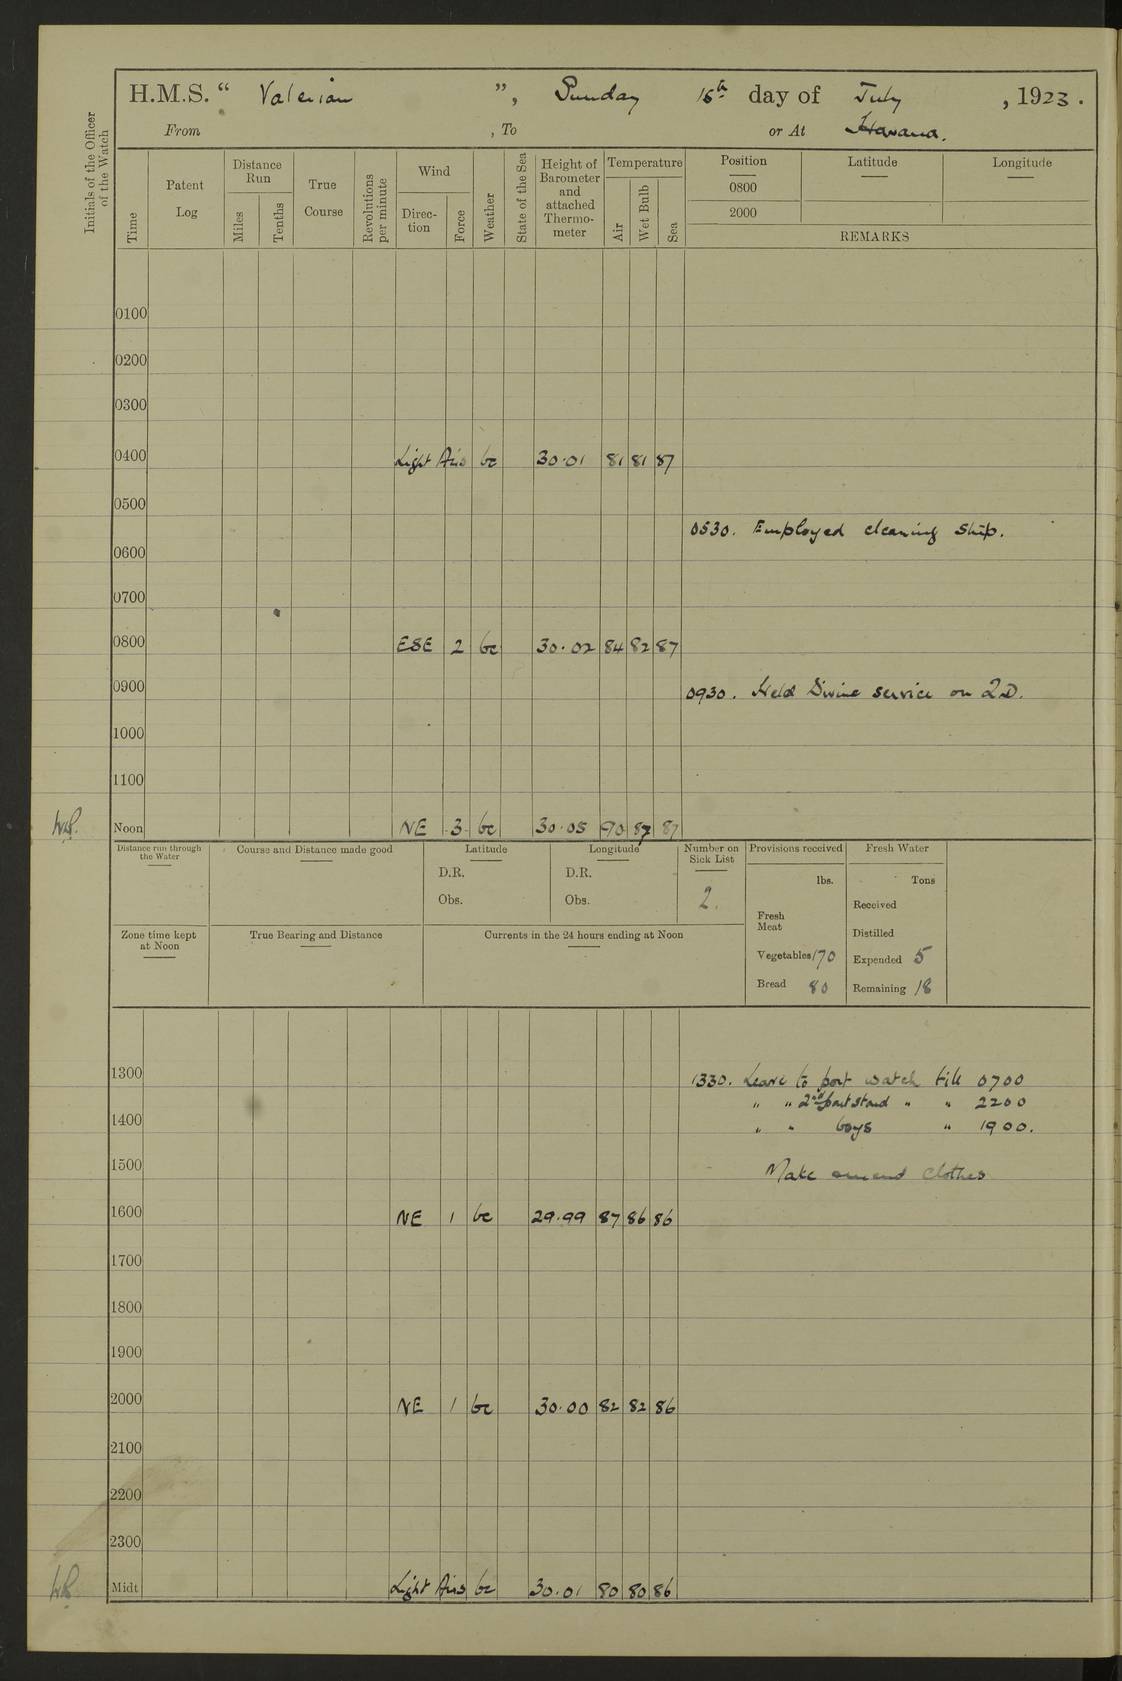 H.M.S. “ Valerian ”, Sunday 15th day of July , 1923 .
From , To or At Havana.
Initials of the Officer of the Watch
Time
Patent Log
Distance Run
Miles
Tenths
True Course
Revolutions per minute
Wind
Direc-tion
Force
Weather
State of the Sea
Height of Barometer and attached Thermo-meter
Temperature
Air
Wet Bulb
Sea
Position Latitude Longitude
0800
2000
REMARKS
0100
0200
0300
0400 Light Airs bc 30.01 81 81 87
0500
0530. Employed cleaning ship.
0600
0700
0800 ESE 2 bc 30.02 84 82 87
0900
0930. Held Divine service on QD.
1000
1100
Noon NE 3 bc 30.05 90 87 87
Distance run through the Water
Course and Distance made good
Latitude
D.R.
Obs.
Longitude
D.R.
Obs.
Number on Sick List
2.
Provisions received
lbs.
Fresh Meat
Vegetables 170
Bread 80
Fresh Water
Tons
Received
Distilled
Expended 5
Remaining 18
Zone time kept at Noon
True Bearing and Distance
Currents in the 24 hours ending at Noon
1300
1330. Leave to port watch till 0700
" " 2nd part stand " " 2200
1400
" " boys " 1900.
1500
Make and mend clothes
1600 NE 1 bc 29.99 87 86 86
1700
1800
1900
2000 NE 1 bc 30.00 82 82 86
2100
2200
2300
Midt Light Airs bc 30.01 80 80 86